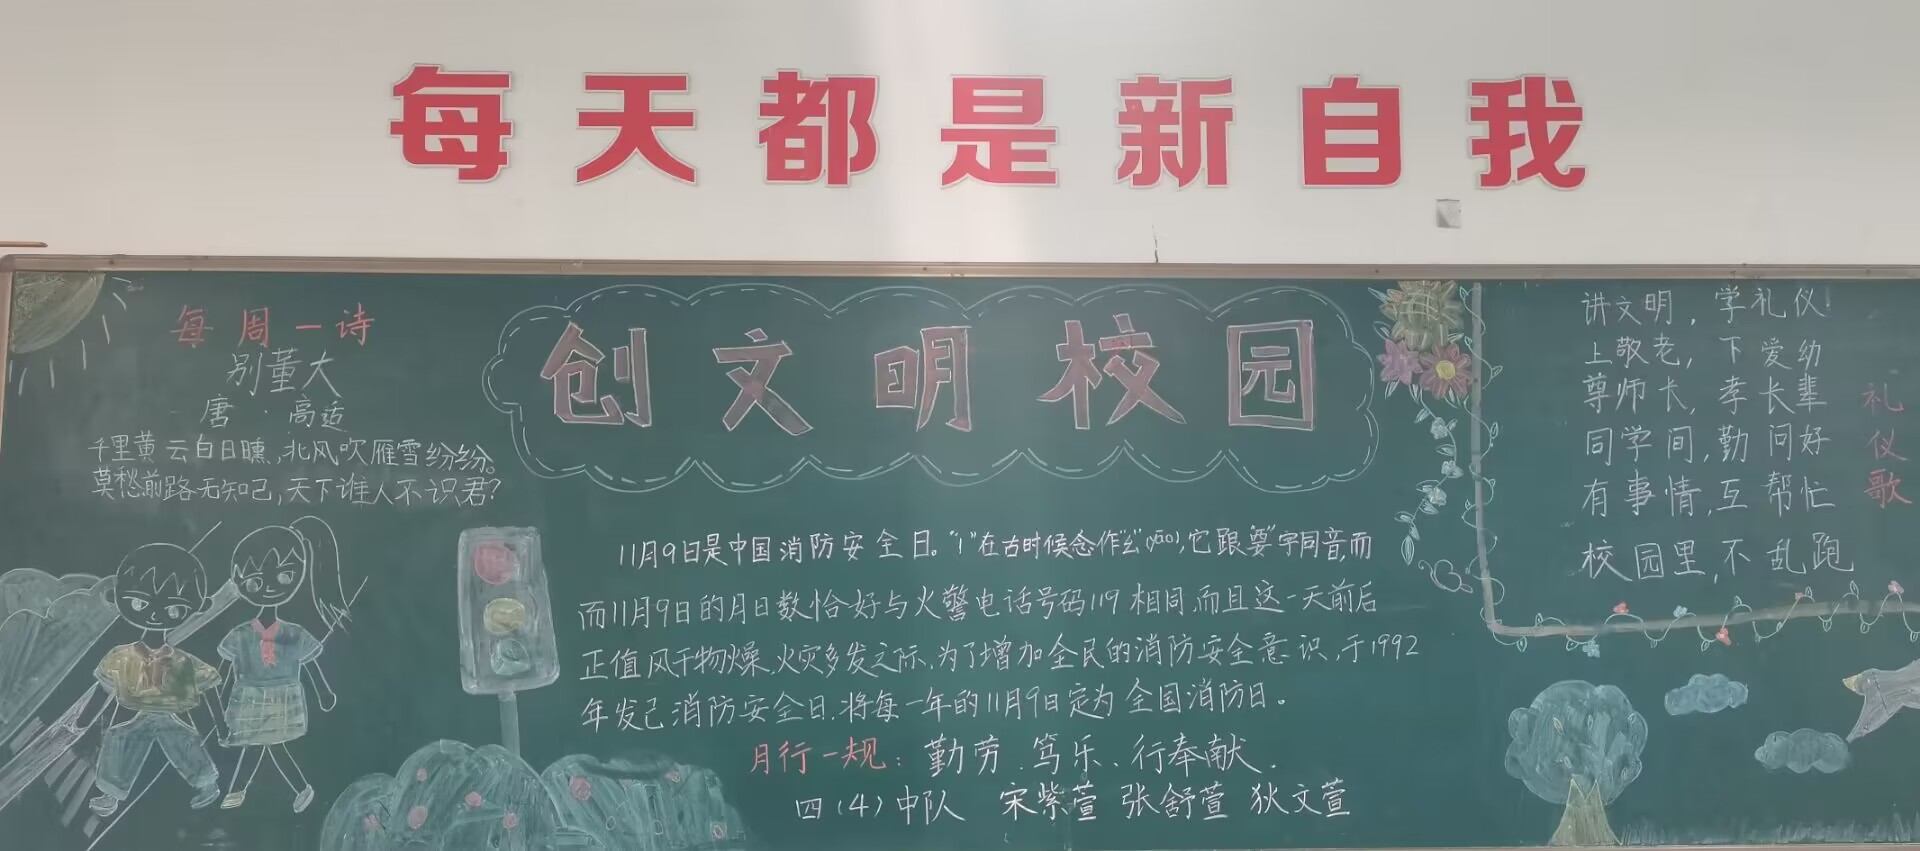 每天都是新自我
每周一诗
别董大
唐·高适
千里黄云白日曛,北风吹雁雪纷纷。
莫愁前路无知己,天下谁人不识君?
创文明校园
11月9日是中国消防安全日。"1"在古时候念作"幺"(yāo),它跟"要"字同音,而
而11月9日的月日数恰好与火警电话号码119相同,而且这一天前后
正值风干物燥,火灾多发之际,为了增加全民的消防安全意识,于1992
年发己消防安全日,将每一年的11月9日定为全国消防日。
月行一规:勤劳、笃乐、行奉献.
四(4)中队 宋紫萱 张舒萱 狄文萱
礼仪歌
讲文明,学礼仪!
上敬老,下爱幼
尊师长,孝长辈
同学间,勤问好
有事情,互帮忙
校园里,不乱跑